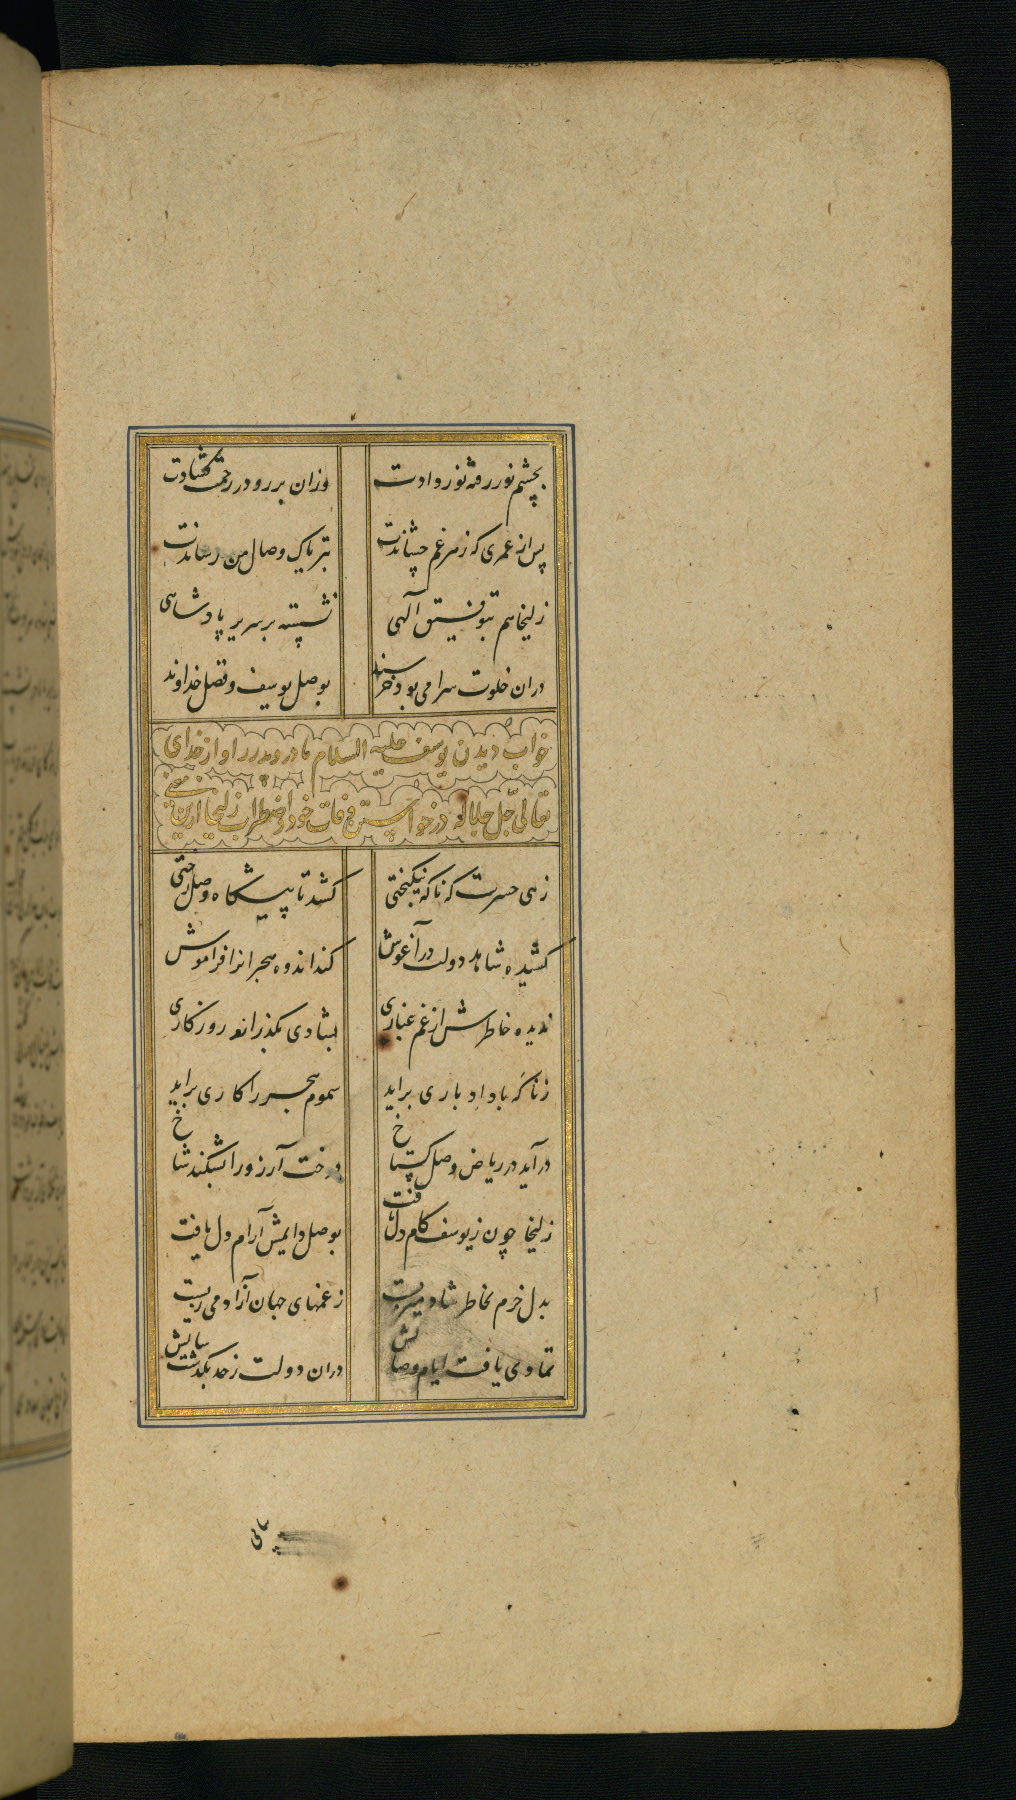 بچشم نور رفته نور وادت وزان بر رو در رحمت گشادت
پس از عمری که زهر غم چشاندت بتریاک وصال من رساندت
زلیخا هم بتوفیق آلهی نشسته بر سریر پادشاهی
دران خلوت سرا می بود خرسند بوصل یوسف و فضل خداوند
خواب دیدن یوسف علیه السلام مادر و پدر را و از خدای
تعالی جل جلاله درخواستن وفات خود و اضطراب زلیخا ازین معنی
زهی حسرت که ناکه نیکبختی کشد تا پیشکاه وصل رختی
کشیده شاهد دولت در آغوش کند اندوه هجرانرا فراموش
ندیده خاطرش از غم غباری بشادی بکذراند روزکاری
زناکه باد ادباری براید سموم هجر را کاری براید
درآید در ریاض وصل کستاخ درخت آرزو را بشکند شاخ
زلیخا چون ز یوسف کام دل یافت بوصل دایمش آرام دل یافت
بدل خرم بخاطر شاد میزیست ز غمهای جهان آزاد می زیست
تمادی یافت ایام وصالش دران دولت ز حد بکذشت سالش